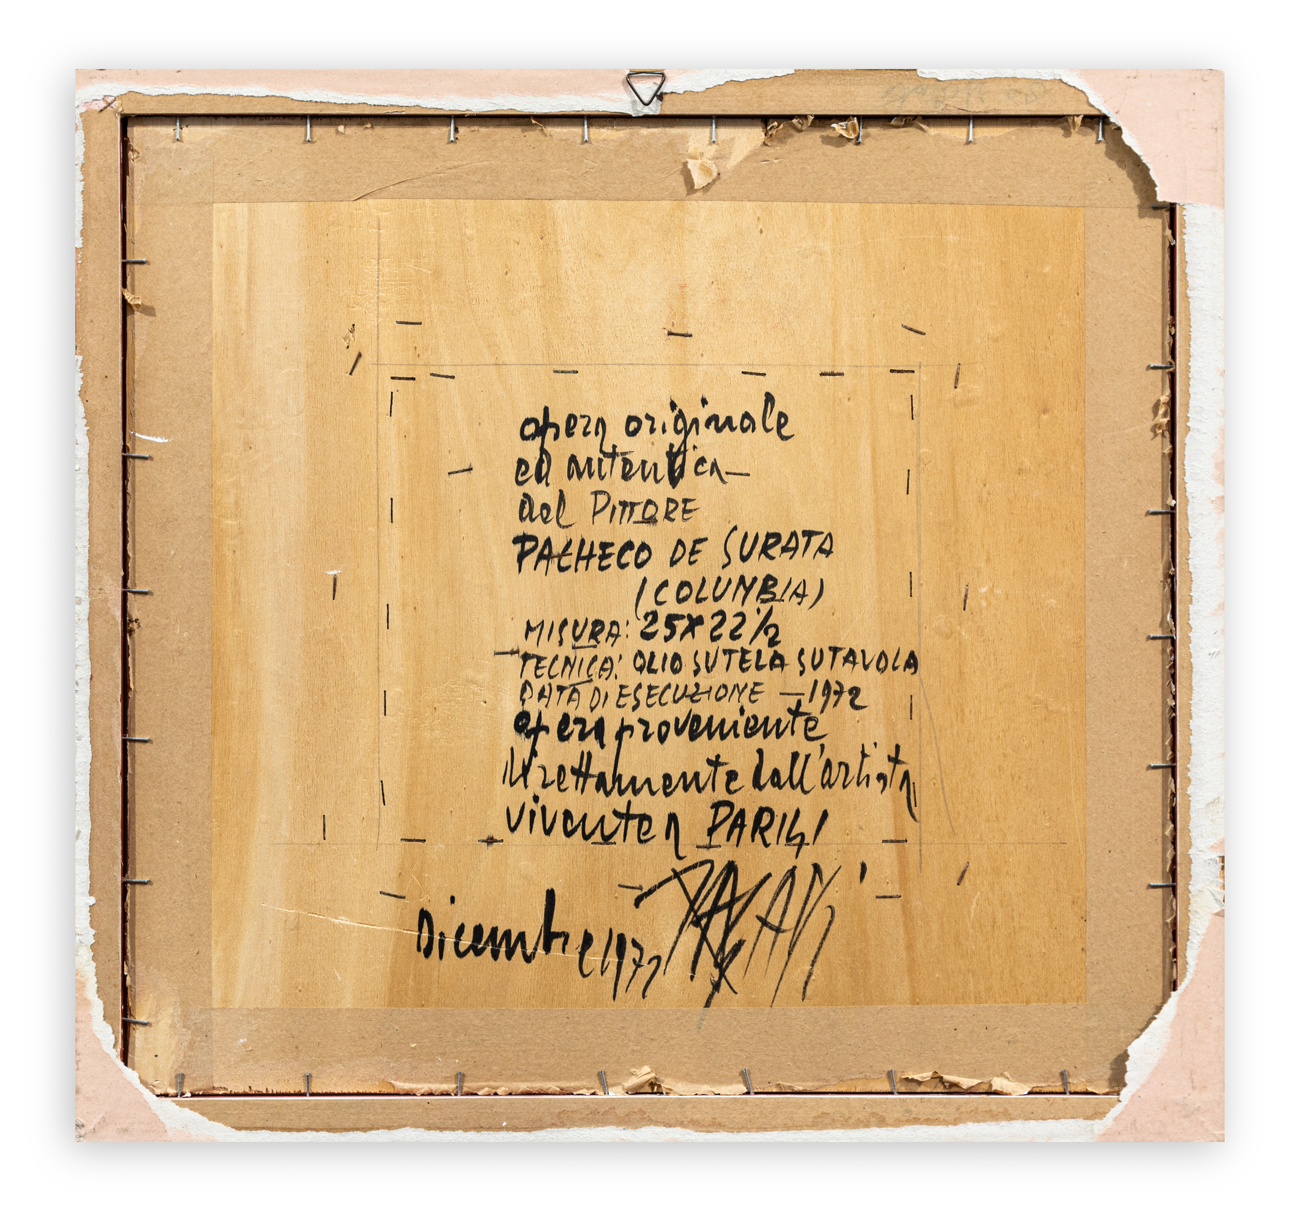 opera originale
ed autentica—
del PITTORE
PACHECO DE SURATA
(COLUMBIA)
MISURA: 25X22½
TECNICA: OLIO SU TELA SU TAVOLA
DATA DI ESECUZIONE —1972
opera proveniente
direttamente dall'artista
vivente a PARIGI
Dicembre 1972